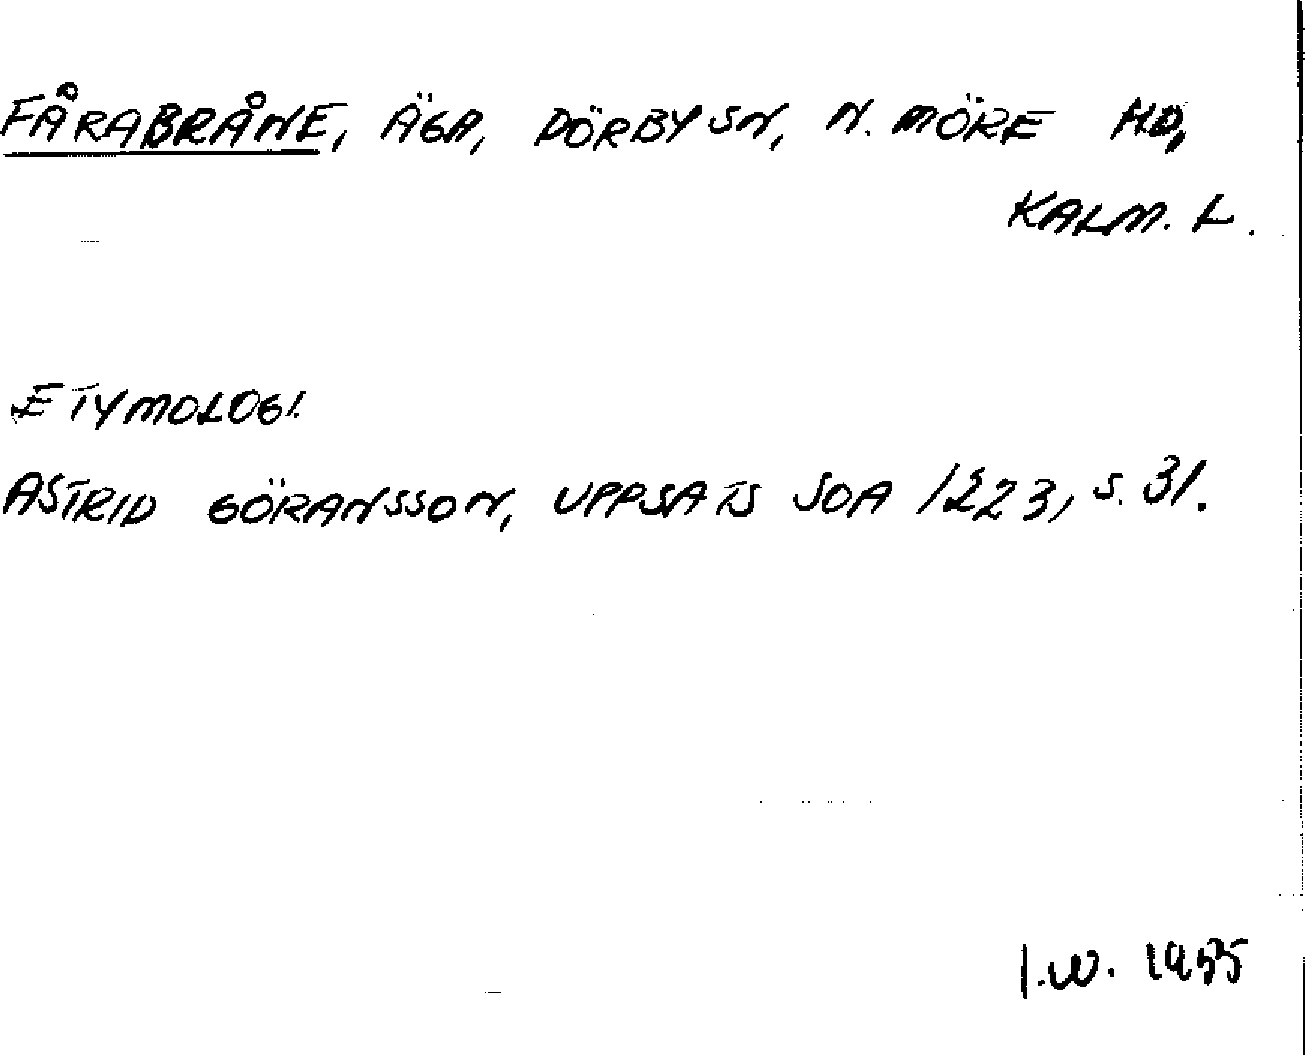 FÅRABRÅNE, ÄGA, DÖRBY SN, N. MÖRE HD,
KALM. L.
ETYMOLOGI.
ASTRID GÖRANSSON, UPPSATS SOA 1223, S. 31.
I.W. 1955